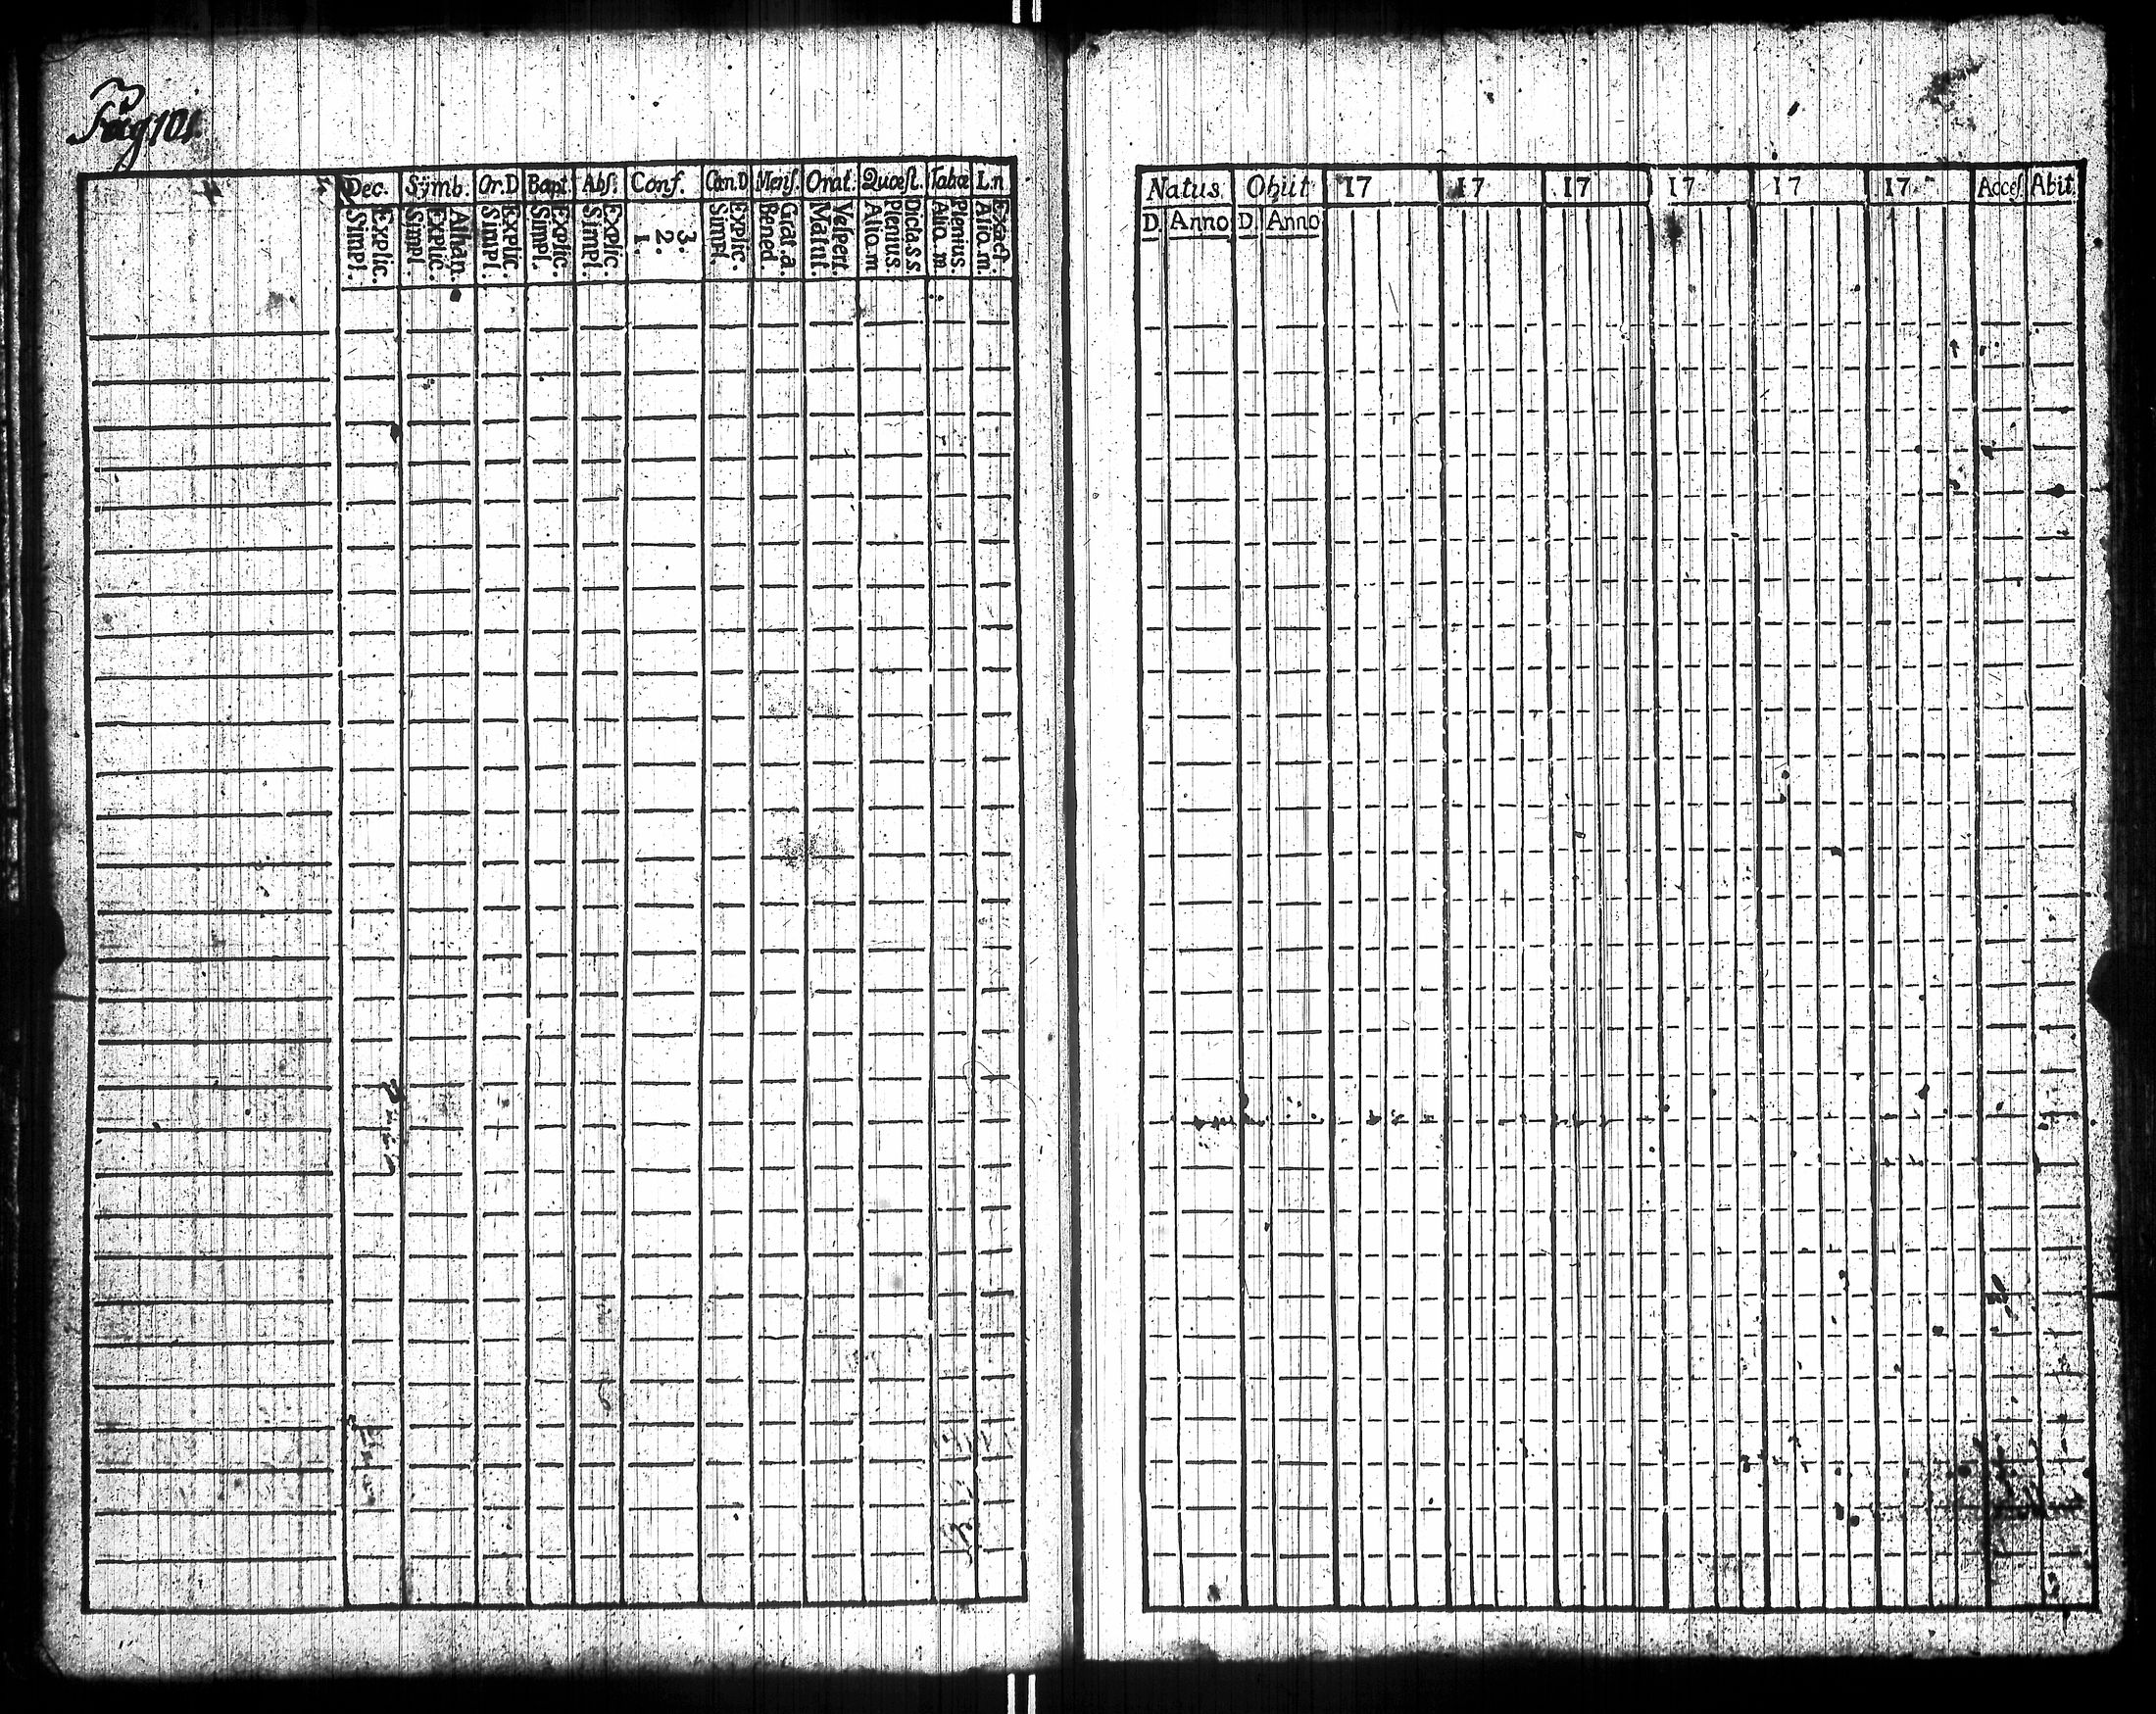 Pag. 101.
Dec. Symb. Or.D Bapt. Abs. Conf. Cœn.D Mens. Orat. Quæst. Tabœ L.n
Explic.
Simpl.
Athan.
Explic.
Simpl.
Explic.
Simpl.
Explic.
Simpl.
Explic.
Simpl.
3.
2.
1.
Explic.
Simpl.
Grat. a.
Bened.
Vespert.
Matut.
Dicta.s.s.
Plenius.
Alio.m
Plenius.
Alio.m
Exact.
Alio.m.
Natus. Obiit 17 17 17 17 17 17 Acces. Abit.
D. Anno D. Anno